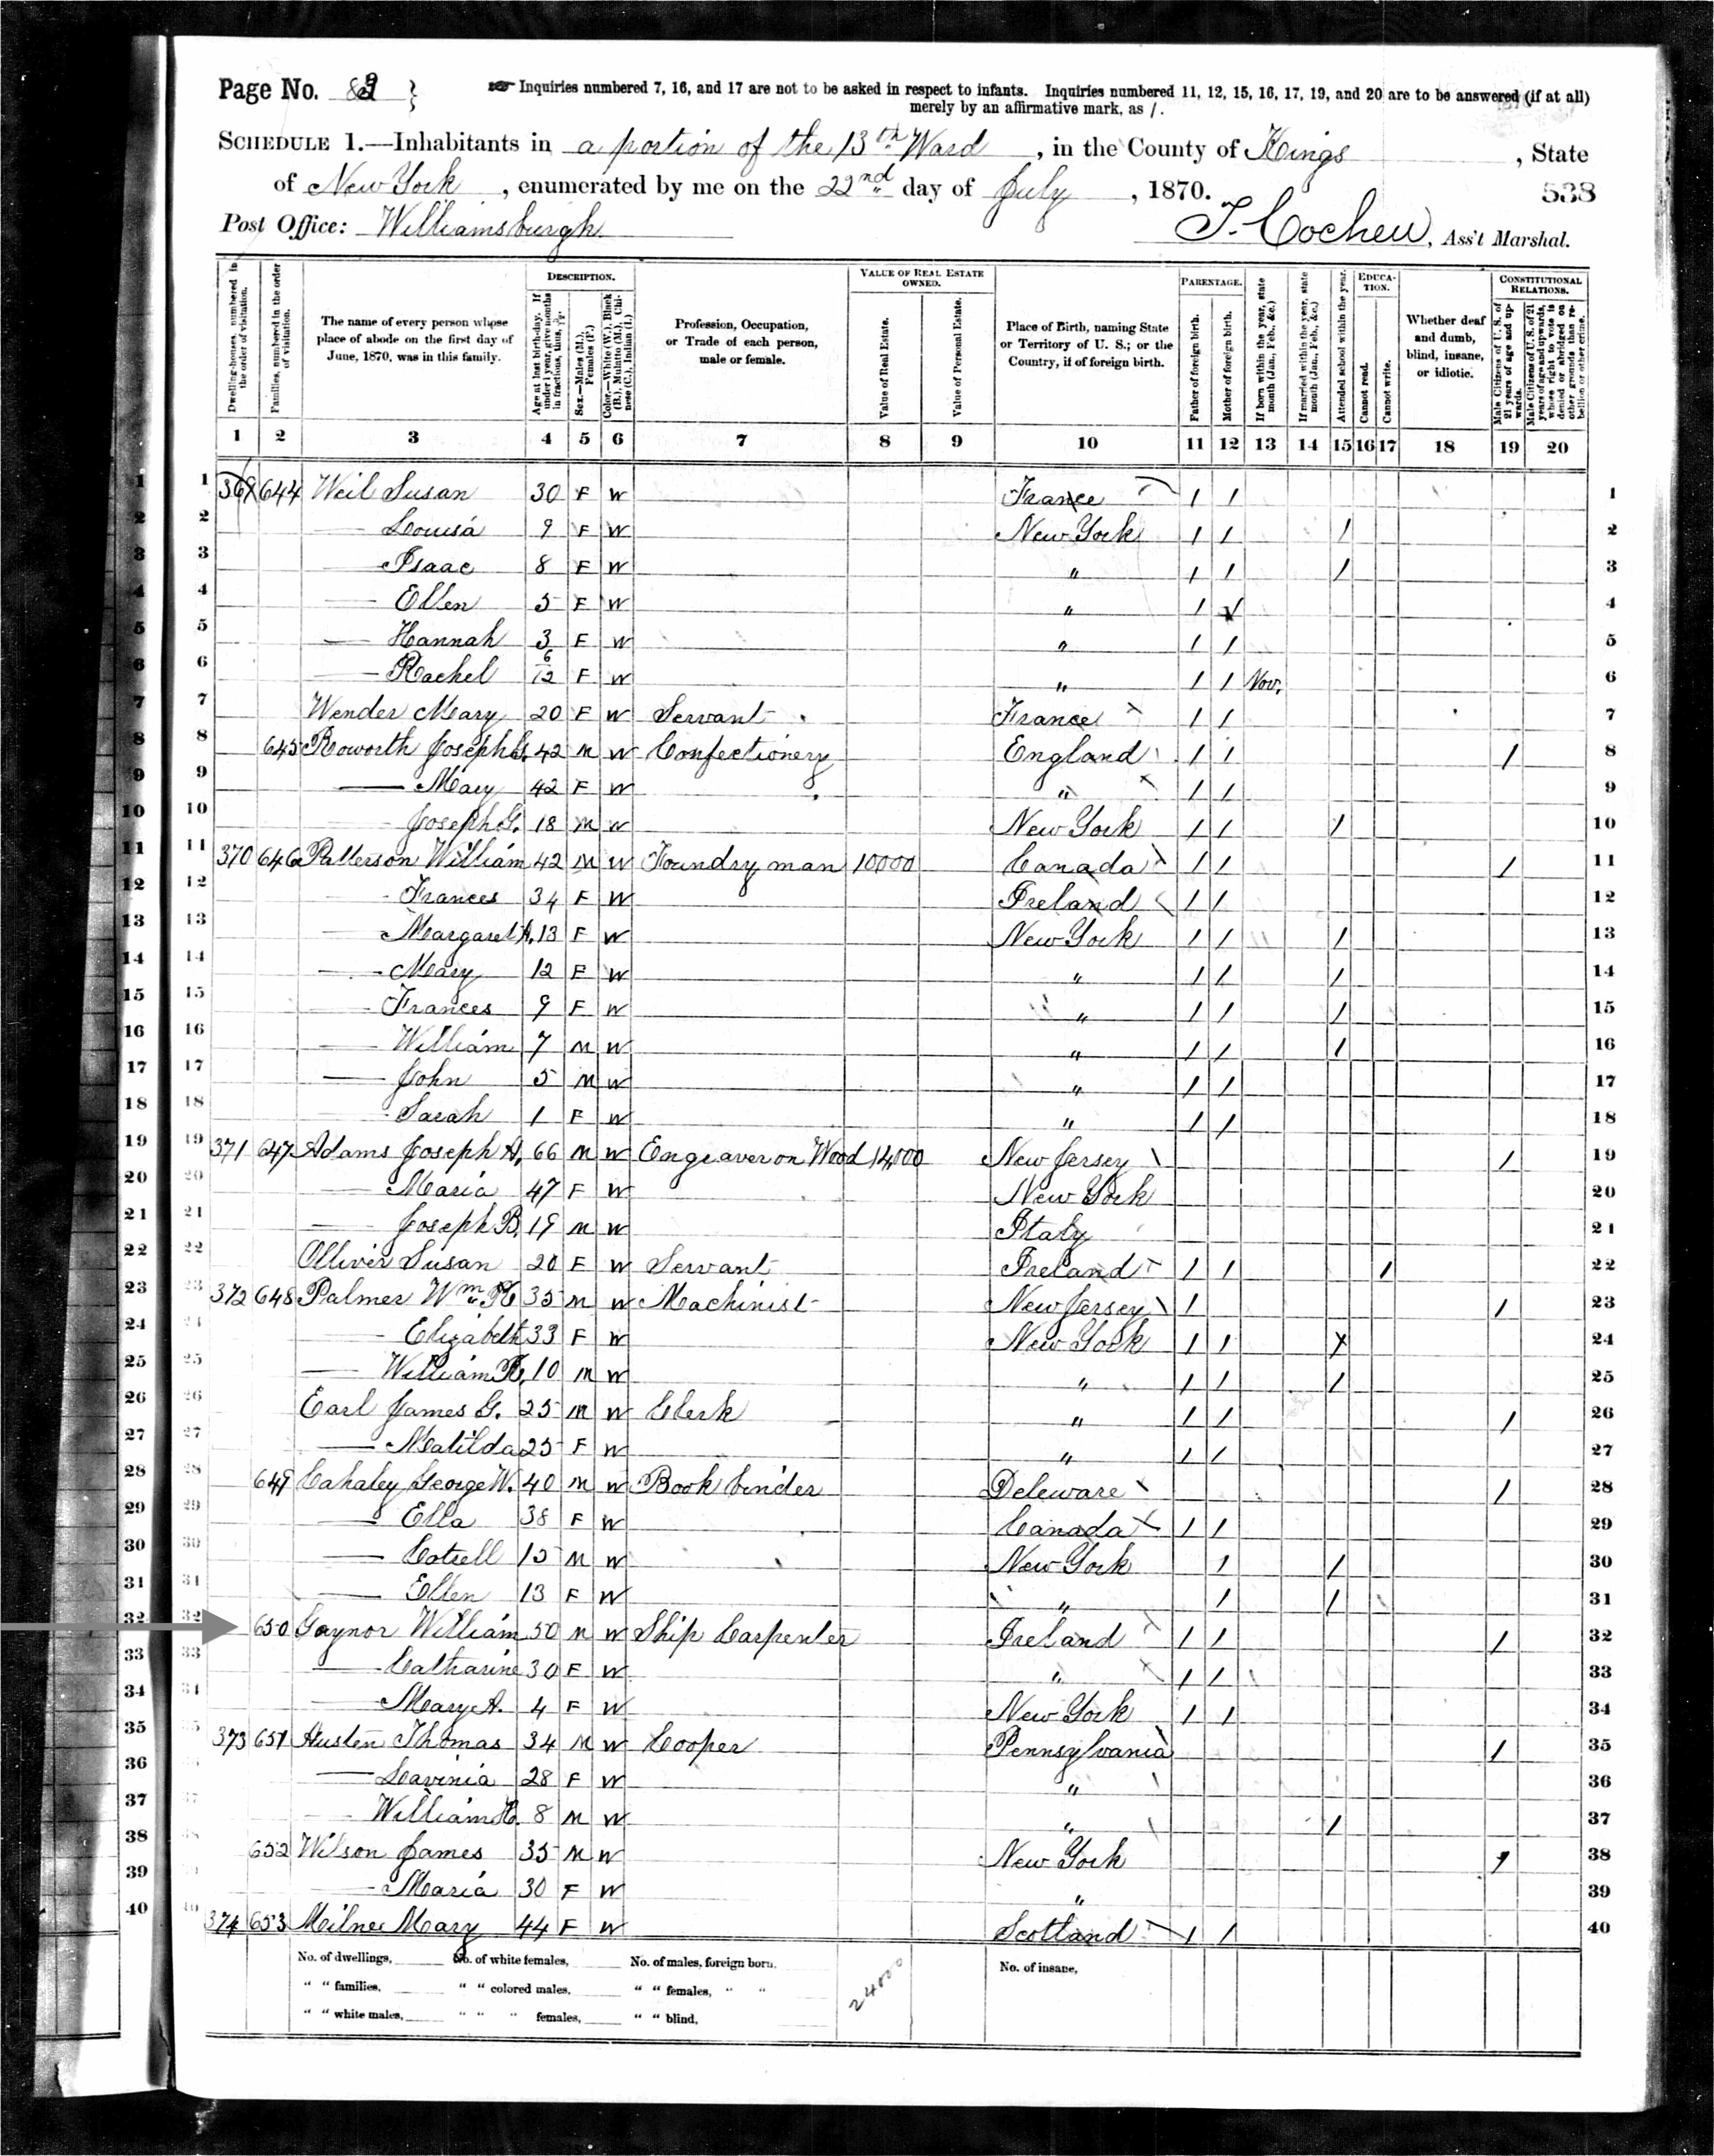 Page No. 89 } Inquiries numbered 7, 16, and 17 are not to be asked in respect to infants. Inquiries numbered 11, 12, 15, 16, 17, 19, and 20 are to be answered (if at all)
merely by an affirmative mark, as /.
SCHEDULE 1.—Inhabitants in a portion of the 13th Ward, in the County of Kings, State
of New York, enumerated by me on the 22nd day of July, 1870. 538
Post Office: Williamsburgh T. Cocheu, Ass't Marshal.
Dwelling-houses, numbered in the order of visitation.
Families, numbered in the order of visitation.
The name of every person whose place of abode on the first day of June, 1870, was in this family.
DESCRIPTION.
Age at last birth-day. If under 1 year, give months in fractions, thus, 3/12.
Sex.—Males (M.), Females (F.)
Color.—White (W.), Black (B.), Mulatto (M.), Chinese (C.), Indian (I.)
Profession, Occupation, or Trade of each person, male or female.
VALUE OF REAL ESTATE OWNED.
Value of Real Estate.
Value of Personal Estate.
Place of Birth, naming State or Territory of U. S.; or the Country, if of foreign birth.
PARENTAGE.
Father of foreign birth.
Mother of foreign birth.
If born within the year, state month (Jan., Feb., &c.)
If married within the year, state month (Jan., Feb., &c.)
Attended school within the year.
EDUCATION.
Cannot read.
Cannot write.
Whether deaf and dumb, blind, insane, or idiotic.
CONSTITUTIONAL RELATIONS.
Male Citizens of U. S. of 21 years of age and upwards.
Male Citizens of U. S. of 21 years of age and upwards, whose right to vote is denied or abridged on other grounds than rebellion or other crime.
1 2 3 4 5 6 7 8 9 10 11 12 13 14 15 16 17 18 19 20
1 1 369 644 Weil Susan 30 F W France / / 1
2 2 — Louisa 9 F W New York / / / 2
3 3 — Isaac 8 F W " / / / 3
4 4 — Ellen 5 F W " / / 4
5 5 — Hannah 3 F W " / / 5
6 6 — Rachel 6/12 F W " / / Nov. 6
7 7 Wender Mary 20 F W Servant France / / 7
8 8 645 Roworth Joseph G. 42 M W Confectionery England / / / 8
9 9 — Mary 42 F W " / / 9
10 10 Joseph G. 18 M W New York / / / 10
11 11 370 646 Patterson William 42 M W Foundry man 10000 Canada / / / 11
12 12 — Frances 34 F W Ireland / / 12
13 13 — Margaret A. 13 F W New York / / / 13
14 14 — Mary 12 F W " / / / 14
15 15 — Frances 9 F W " / / / 15
16 16 — William 7 M W " / / / 16
17 17 — John 5 M W " / / 17
18 18 — Sarah 1 F W " / / 18
19 19 371 647 Adams Joseph A. 66 M W Engraver on Wood 14,000 New Jersey / 19
20 20 — Maria 47 F W New York 20
21 21 — Joseph B. 19 M W Italy 21
22 22 Olliver Susan 20 F W Servant Ireland / / / 22
23 23 372 648 Palmer Wm H 35 M W Machinist New Jersey / / 23
24 24 — Elizabeth 33 F W New York / / 24
25 25 — William H. 10 M W " / / / 25
26 26 Earl James G. 25 M W Clerk " / / / 26
27 27 — Matilda 25 F W " / / 27
28 28 649 Cahaley George W. 40 M W Book binder Deleware / 28
29 29 — Ella 38 F W Canada / / 29
30 30 — Cotrell 15 M W New York / / 30
31 31 — Ellen 13 F W " / / 31
32 32 650 Gaynor William 50 M W Ship Carpenter Ireland / / / 32
33 33 — Catharine 30 F W " / / 33
34 34 — Mary A. 4 F W New York / / 34
35 35 373 651 Husten Thomas 34 M W Cooper Pennsylvania / 35
36 — Lavinia 28 F W " 36
37 37 — William H. 8 M W " / 37
38 38 652 Wilson James 35 M W New York / 38
39 — Maria 30 F W " 39
40 40 374 653 Milne Mary 44 F W Scotland / / 40
No. of dwellings, No. of white females, No. of males, foreign born. 24000 No. of insane,
" " families, " " colored males, " " females, " "
" " white males, " " " females, " " blind,